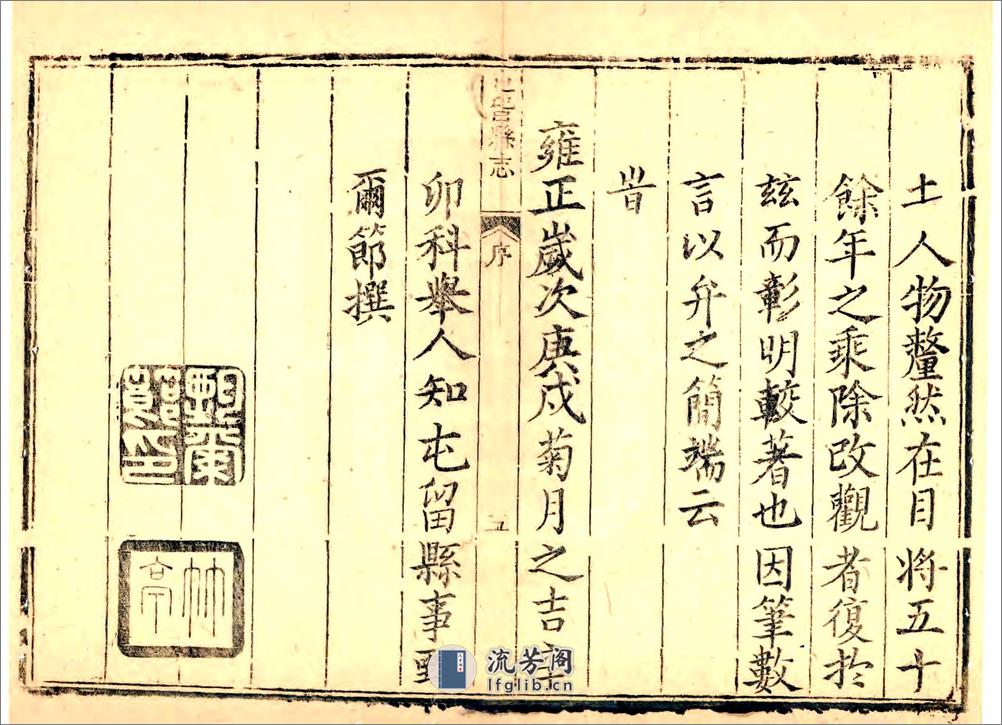 土人物釐然在目将五十
餘年之乘除改觀者復扵
玆而彰明較著也因筆數
言以弁之簡端云
旹
雍正歲次庚戌菊月之吉
屯留縣志
序
五
卯科舉人知屯留縣事
爾節撰
甄爾節印
竹亭
流芳阁
lfglib.cn